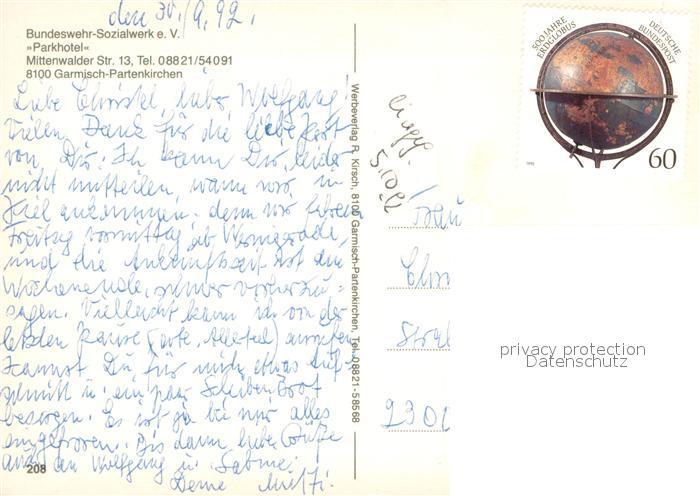 den 30./9.92.
Bundeswehr-Sozialwerk e. V.
»Parkhotel«
Mittenwalder Str. 13, Tel. 08821/54091
8100 Garmisch-Partenkirchen
Liebe Christel, lieber Wolfgang!
Vielen Dank für die liebe Post
von Dir. Ich kann Dir leider
nicht mitteilen, wann wir in
Kiel ankommen, denn wir fahren
Freitag vormittag ab Wernigerode,
und die Ankunftszeit ist am
Wochenende, schwer vorherzu-
sagen. Vielleicht kann ich von der
letzten Pause anrufen
Kannst Du für mich etwas Auf-
schnitt u. ein paar Scheiben Brot
besorgen. Es ist ja bei mir alles
eingefroren. Bis dann liebe Grüße
auch an Wolfgang u. Sabine.
Deine Mutti.
208
Werbeverlag R. Kirsch, 8100 Garmisch-Partenkirchen, Tel. 08821-58568
eingeg.
5.10.92
500 JAHRE
ERDGLOBUS
DEUTSCHE
BUNDESPOST
1992
60
Frau
Chris
Stral
2300
privacy protection
Datenschutz